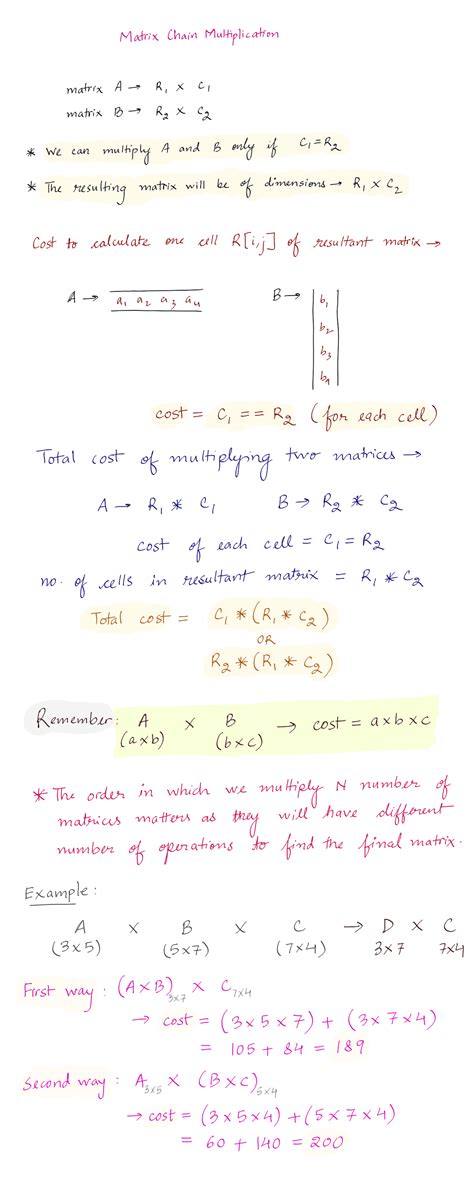 Matrix Chain Multiplication
matrix A → R₁ × C₁
matrix B → R₂ × C₂
* We can multiply A and B only if C₁=R₂
* The resulting matrix will be of dimensions → R₁ × C₂
Cost to calculate one cell R[i,j] of resultant matrix →
A → a₁ a₂ a₃ a₄ B →
b₁
b₂
b₃
b₄
cost = C₁ == R₂ (for each cell)
Total cost of multiplying two matrices →
A → R₁ * C₁ B → R₂ * C₂
cost of each cell = C₁ = R₂
no. of cells in resultant matrix = R₁ * C₂
Total cost = C₁ * (R₁ * C₂)
OR
R₂ * (R₁ * C₂)
Remember: A × B → cost = a×b×c
(a×b) (b×c)
* The order in which we multiply N number of
matrices matters as they will have different
number of operations to find the final matrix.
Example:
A × B × C → D × C
(3×5) (5×7) (7×4) 3×7 7×4
First way : (A×B)₃ₓ₇ × C₇ₓ₄
→ cost = (3×5×7) + (3×7×4)
= 105 + 84 = 189
Second way : A₃ₓ₅ × (B×C)₅ₓ₄
→ cost = (3×5×4) + (5×7×4)
= 60 + 140 = 200